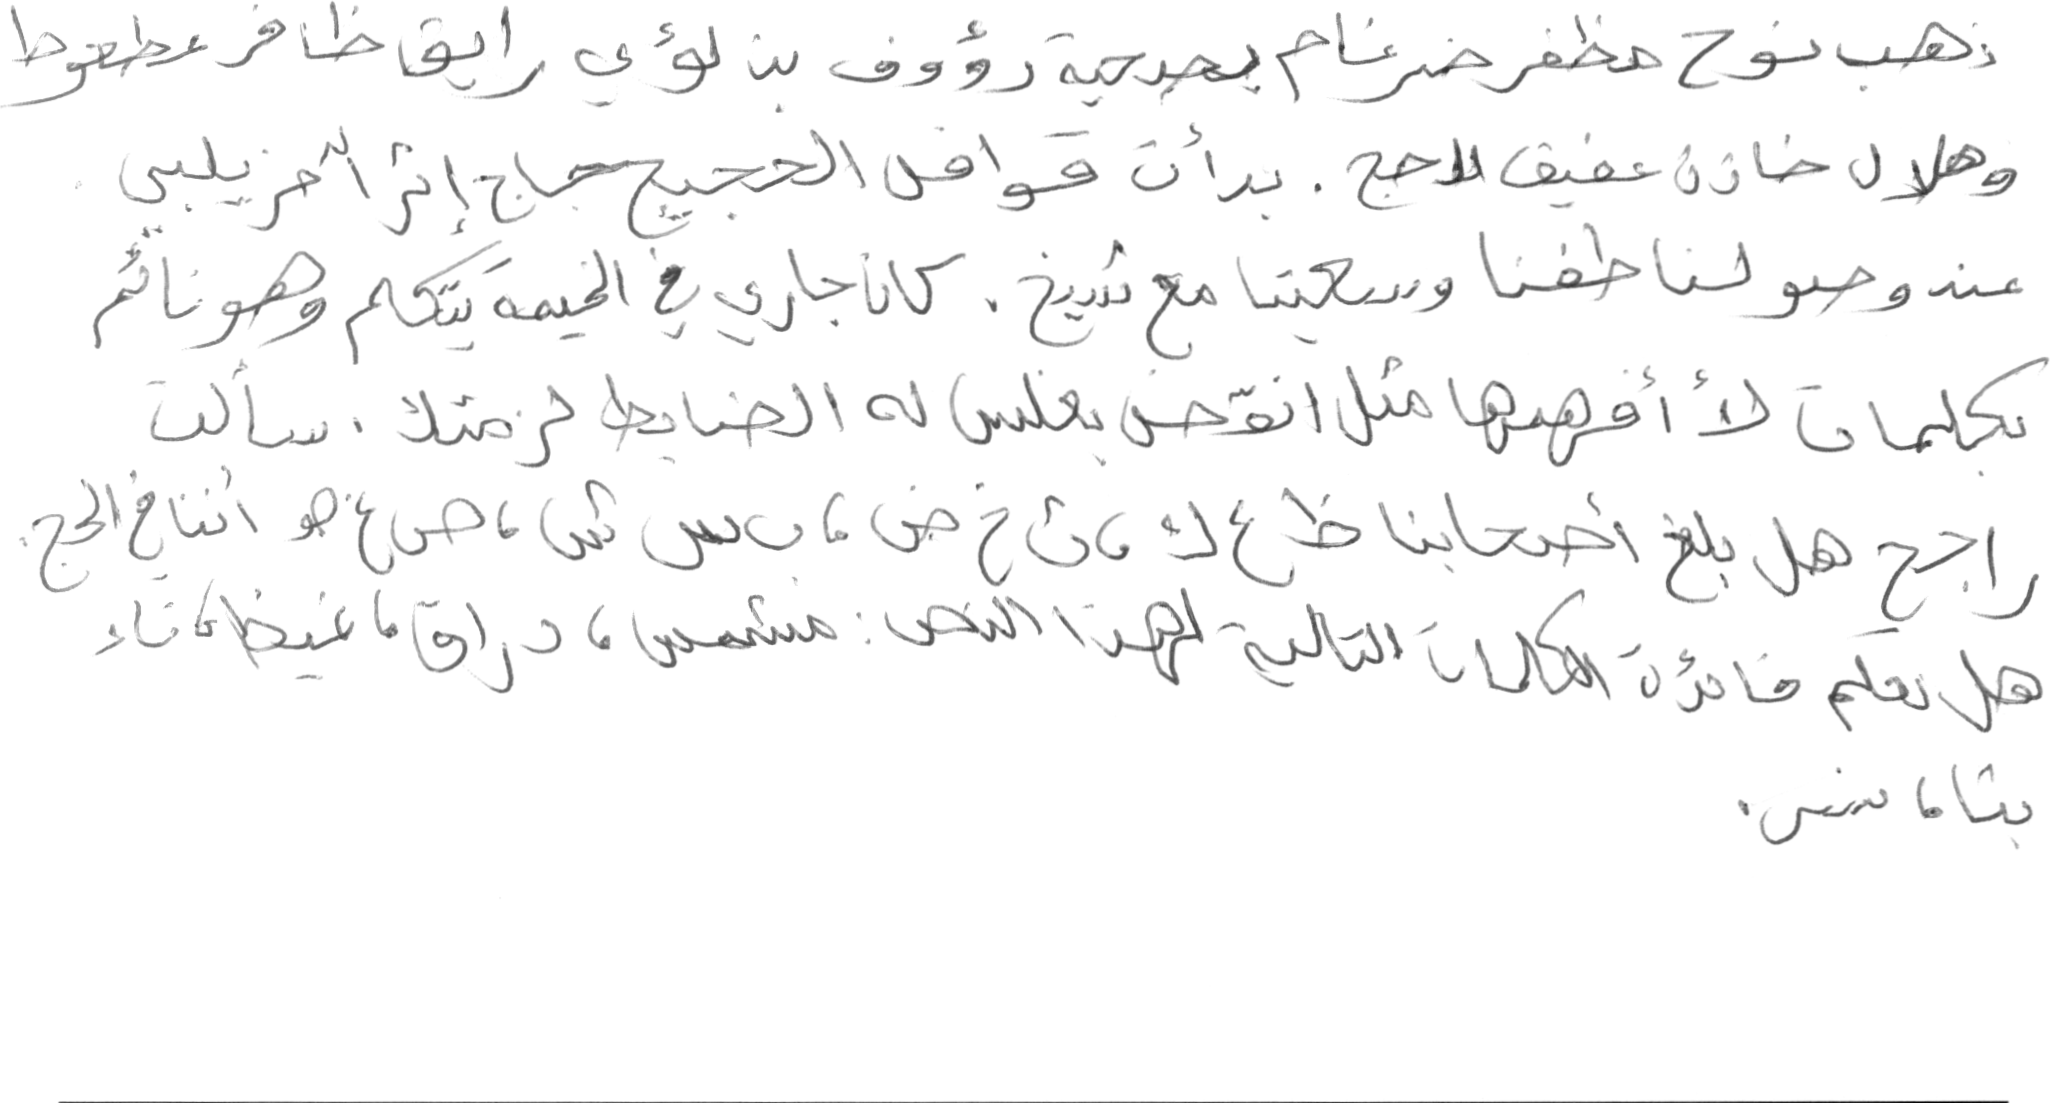 ذهب نوح مظفر ضرغام بصحبة رؤوف بن لؤي رايق ظافر عطعوط
وهلال خازن عفيف للحج . بدأت قوافل الحجيج حجاج إثر آخر يلبي .
عند وصولنا طفنا وسعينا مع شيخ . كان جاري في الخيمة يتكلم وهو نائم
بكلمات لا أفهمها مثل انقض بغلس له الضابط لزمتك . سألت
راجح هل بلغ أصحابنا ظ ع ك ، ث خ ض ، ب س ش ، ص غ هو اننا في الحج .
هل تعلم فائدة الكلمات التالية لهذا النص : مشمس ، دراق ، غيظ ، تاء
بثا ، سنس .